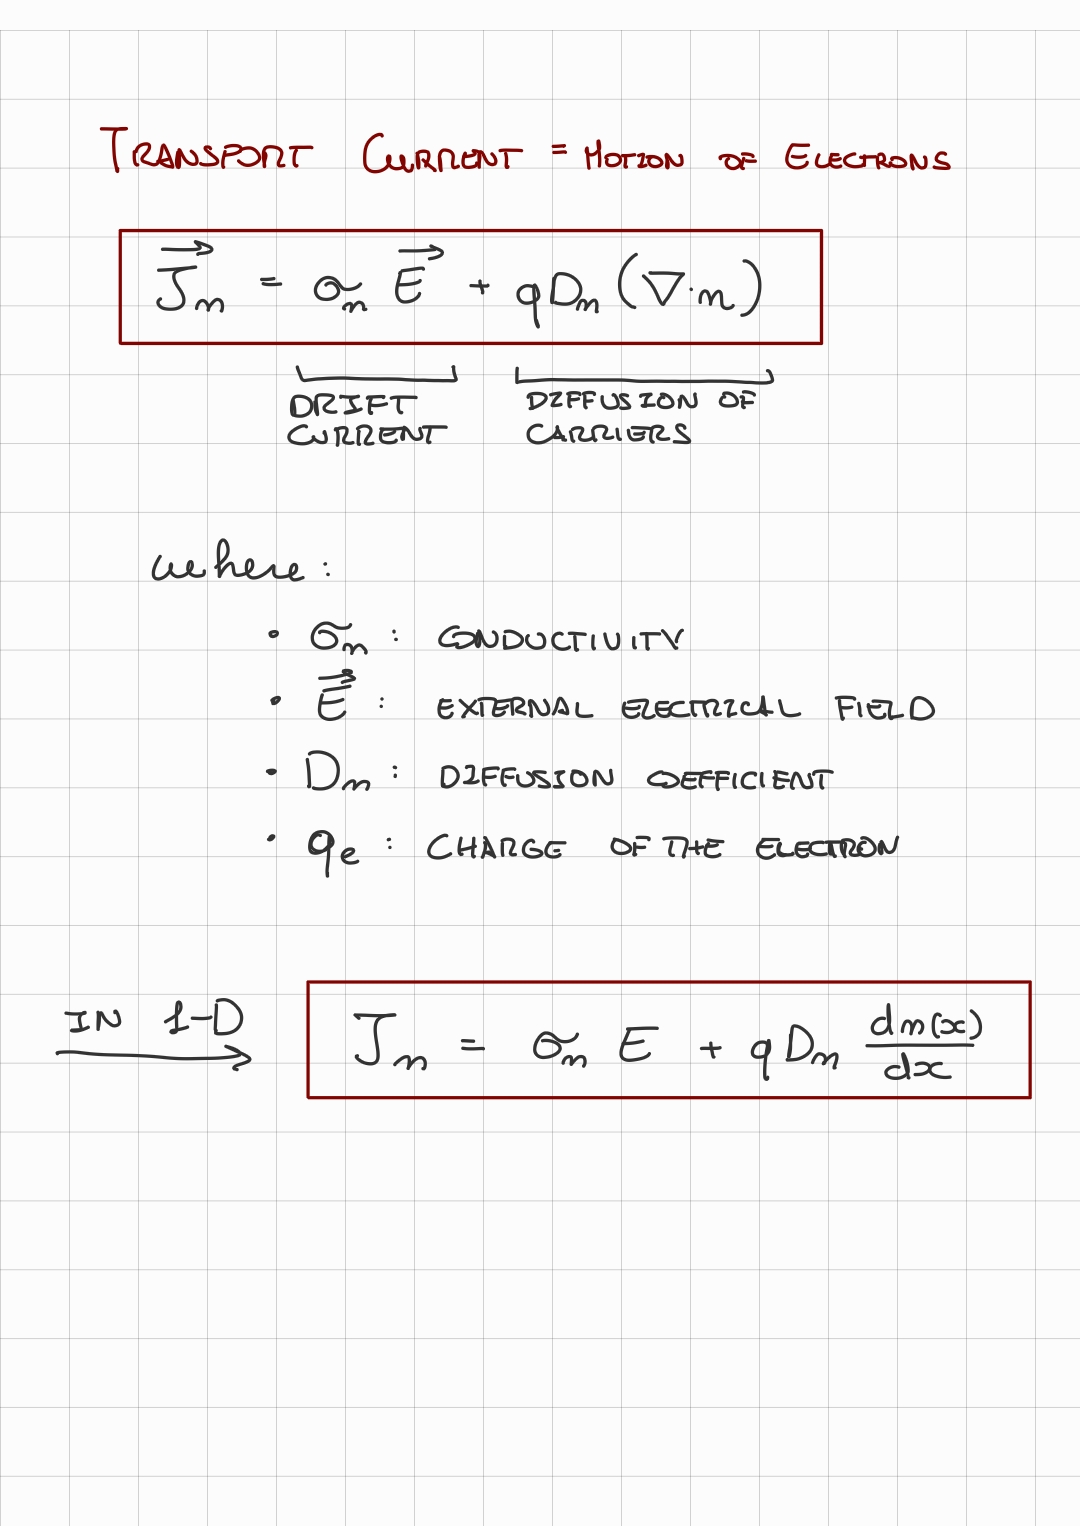 TRANSPORT CURRENT = MOTION OF ELECTRONS
J⃗n = σn E⃗ + qDn (∇·n)
DRIFT CURRENT
DIFFUSION OF CARRIERS
where:
• σn : CONDUCTIVITY
• E⃗ : EXTERNAL ELECTRICAL FIELD
• Dn : DIFFUSION COEFFICIENT
• qe : CHARGE OF THE ELECTRON
IN 1-D
Jn = σn E + qDn dn(x)/dx